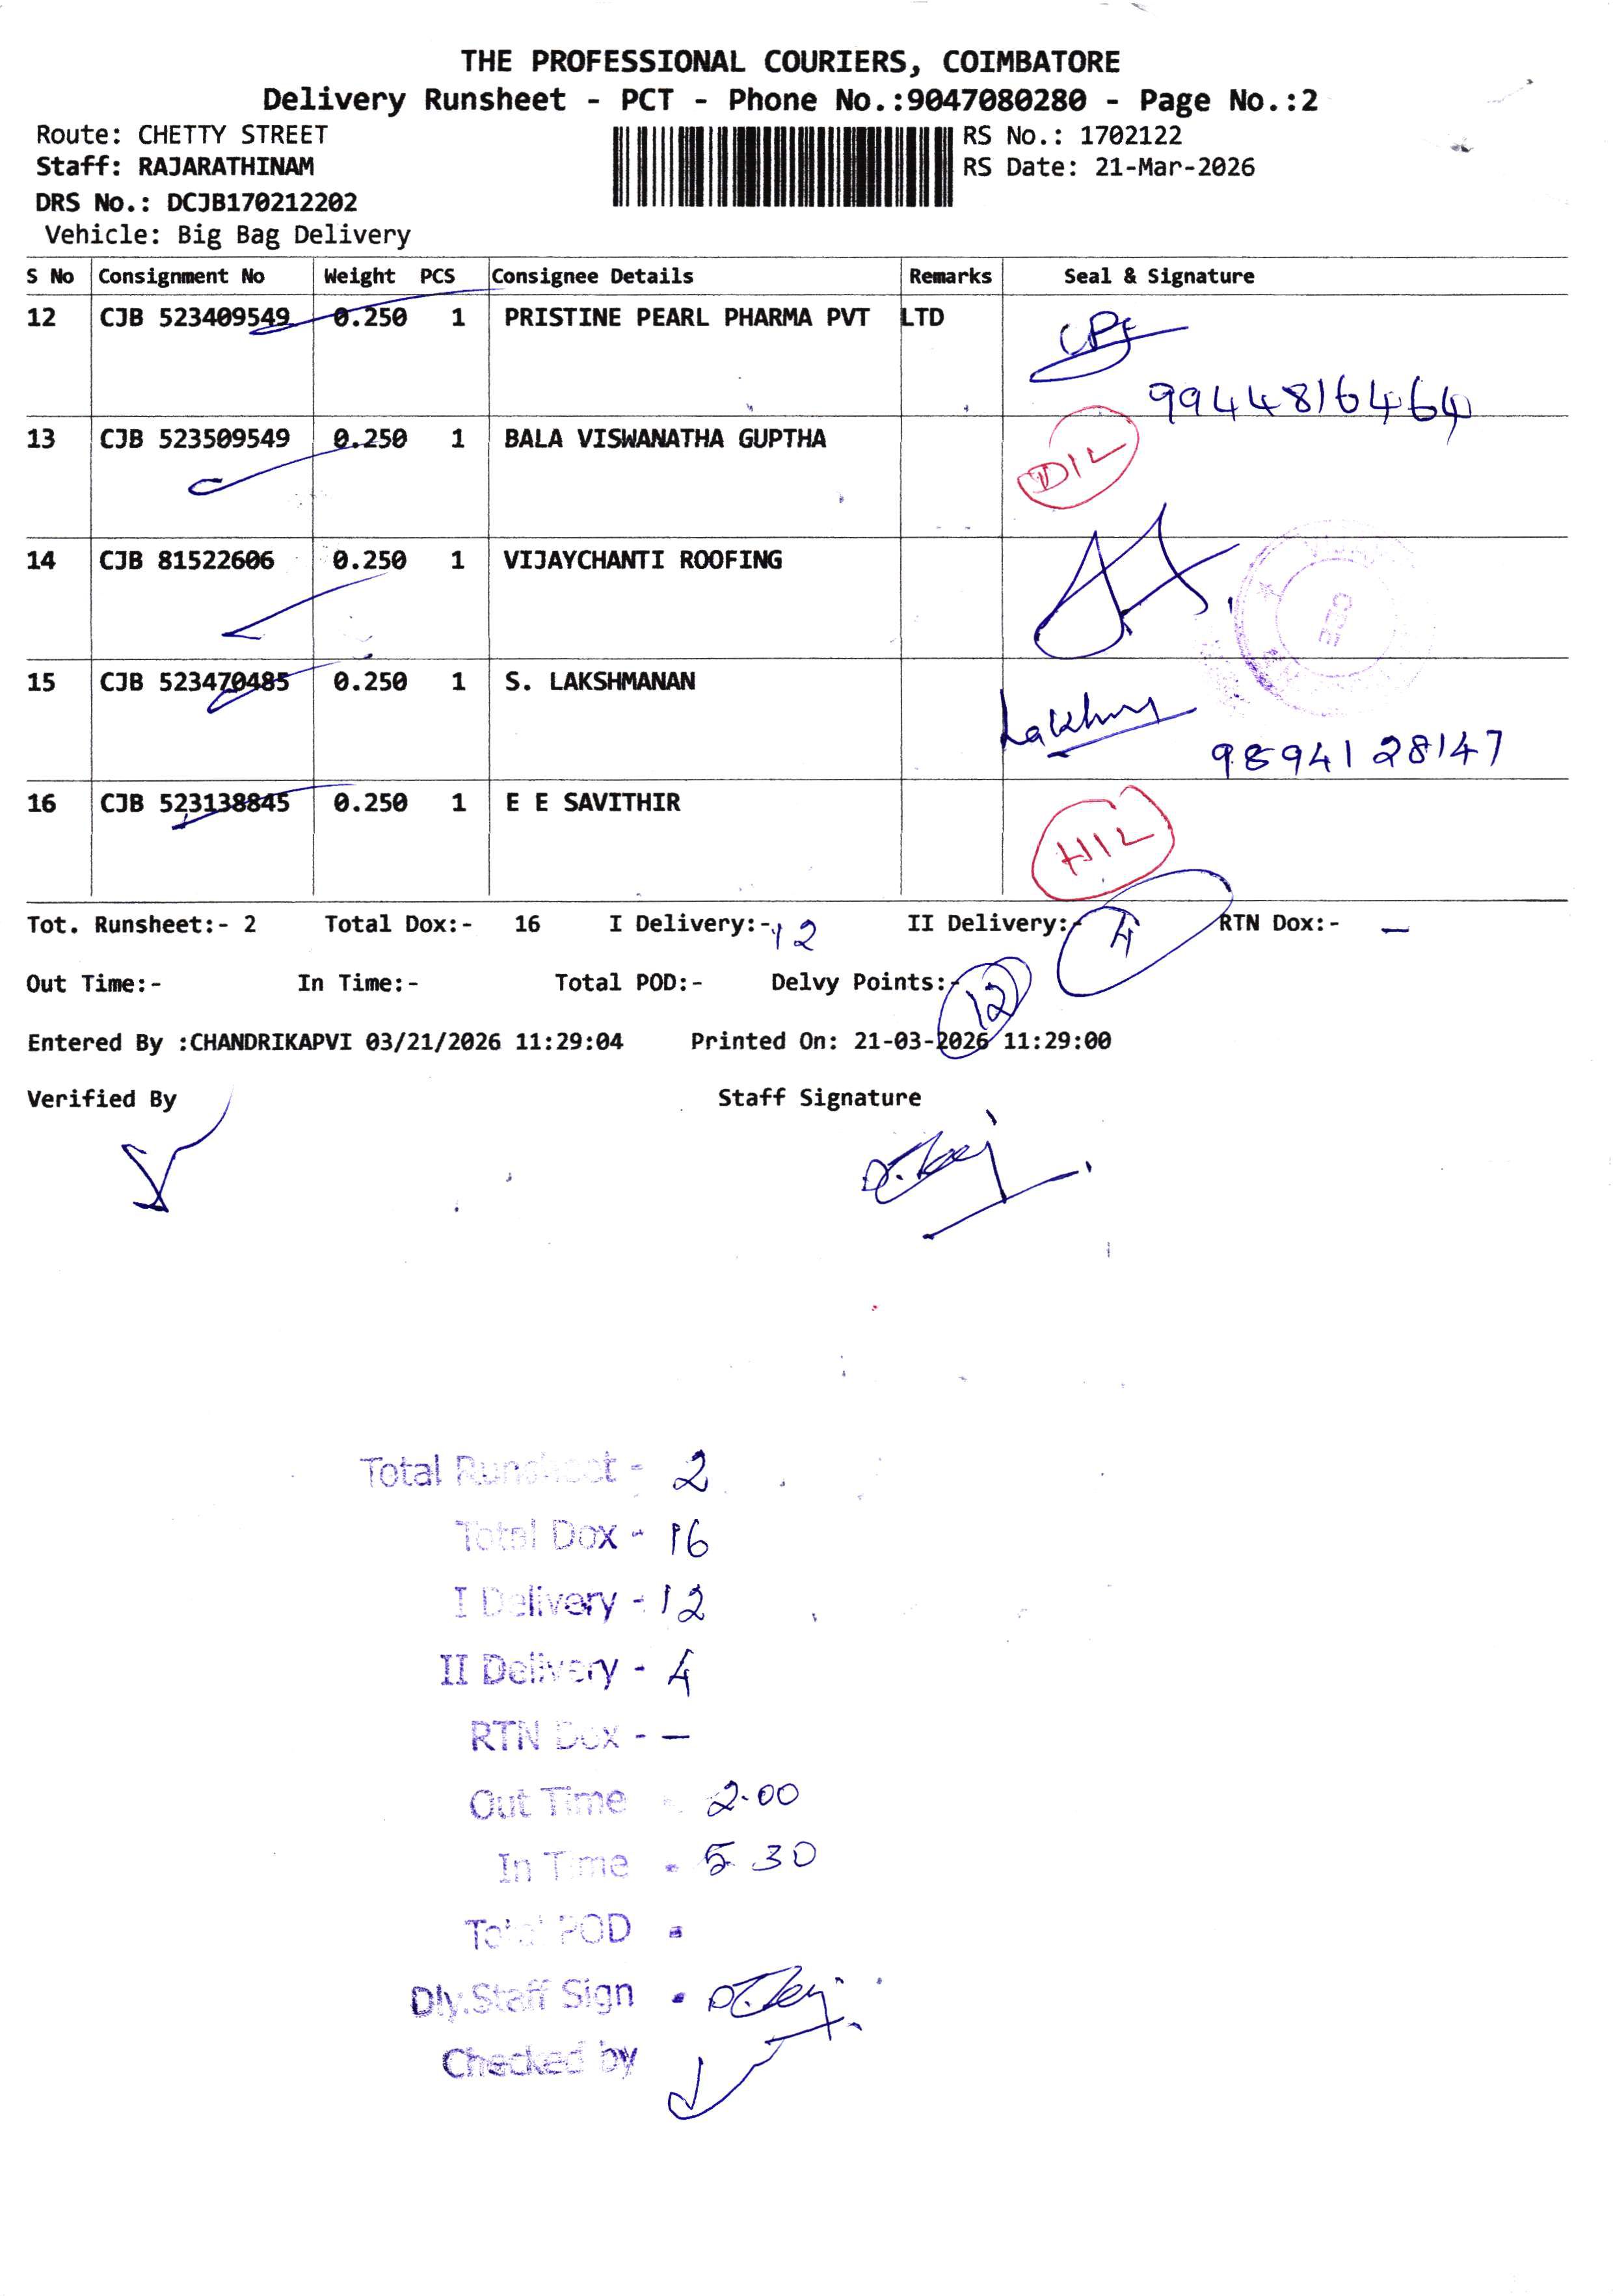 THE PROFESSIONAL COURIERS, COIMBATORE
Delivery Runsheet - PCT - Phone No.:9047080280 - Page No.:2
Route: CHETTY STREET
RS No.: 1702122
Staff: RAJARATHINAM
RS Date: 21-Mar-2026
DRS No.: DCJB170212202
Vehicle: Big Bag Delivery
S No Consignment No Weight PCS Consignee Details Remarks Seal & Signature
12 CJB 523409549 0.250 1 PRISTINE PEARL PHARMA PVT LTD
9944816464
13 CJB 523509549 0.250 1 BALA VISWANATHA GUPTHA DIL
14 CJB 81522606 0.250 1 VIJAYCHANTI ROOFING
15 CJB 523470485 0.250 1 S. LAKSHMANAN
9894128147
16 CJB 523138845 0.250 1 E E SAVITHIR HIL
Tot. Runsheet:- 2 Total Dox:- 16 I Delivery:- 12 II Delivery:- 4 RTN Dox:- —
Out Time:- In Time:- Total POD:- Delvy Points:- 12
Entered By :CHANDRIKAPVI 03/21/2026 11:29:04 Printed On: 21-03-2026 11:29:00
Verified By Staff Signature
Total Runsheet - 2
Total Dox - 16
I Delivery - 12
II Delivery - 4
RTN Dox - —
Out Time - 2.00
In Time - 5.30
Total POD -
Dly.Staff Sign -
Checked by